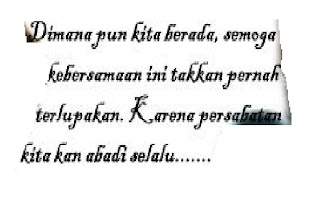 Dimana pun kita berada, semoga
kebersamaan ini takkan pernah
terlupakan. Karena persabatan
kita kan abadi selalu.......